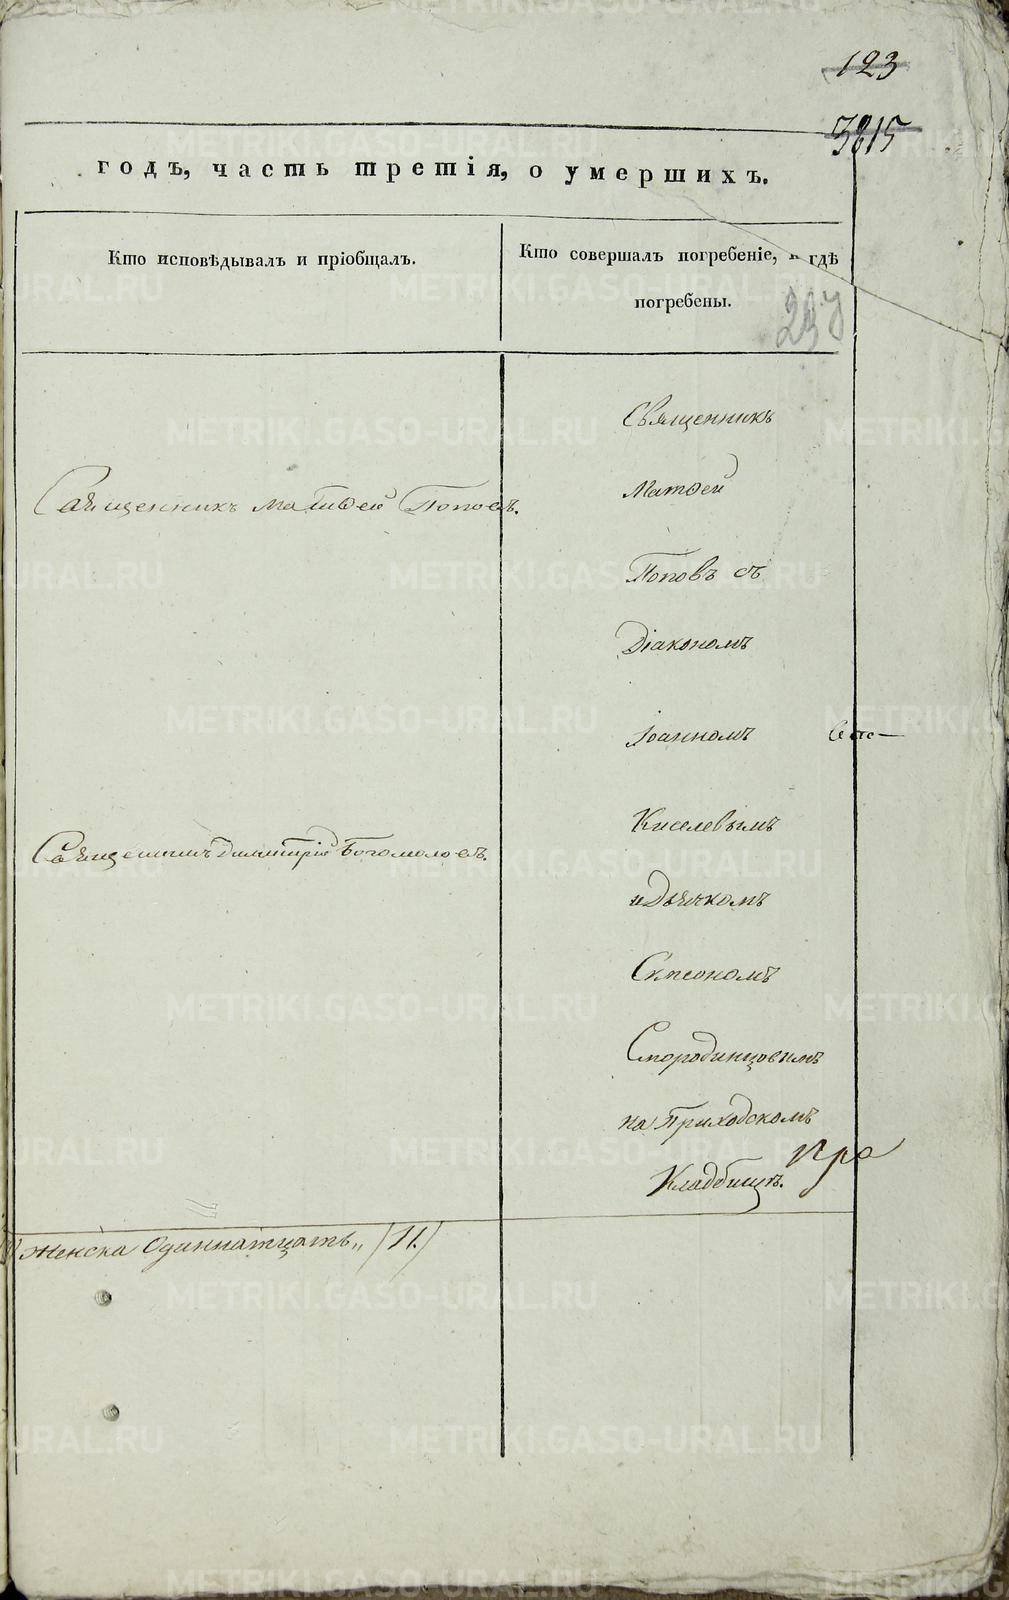 123
3815
годъ, часть третія, о умершихъ.
Кто исповѣдывалъ и пріобщалъ.
Кто совершалъ погребеніе, и гдѣ
погребены.
Священникъ Матѳей Поповъ.
Священникъ Димитрій Богомоловъ.
Священникъ
Матѳей
Поповъ съ
Діакономъ
Іоанномъ
Киселевымъ
и Дьячкомъ
Симеономъ
Смородинцовымъ
на Приходскомъ
Кладбищѣ.
женска Одиннатцать„ /11./
METRIKI.GASO-URAL.RU